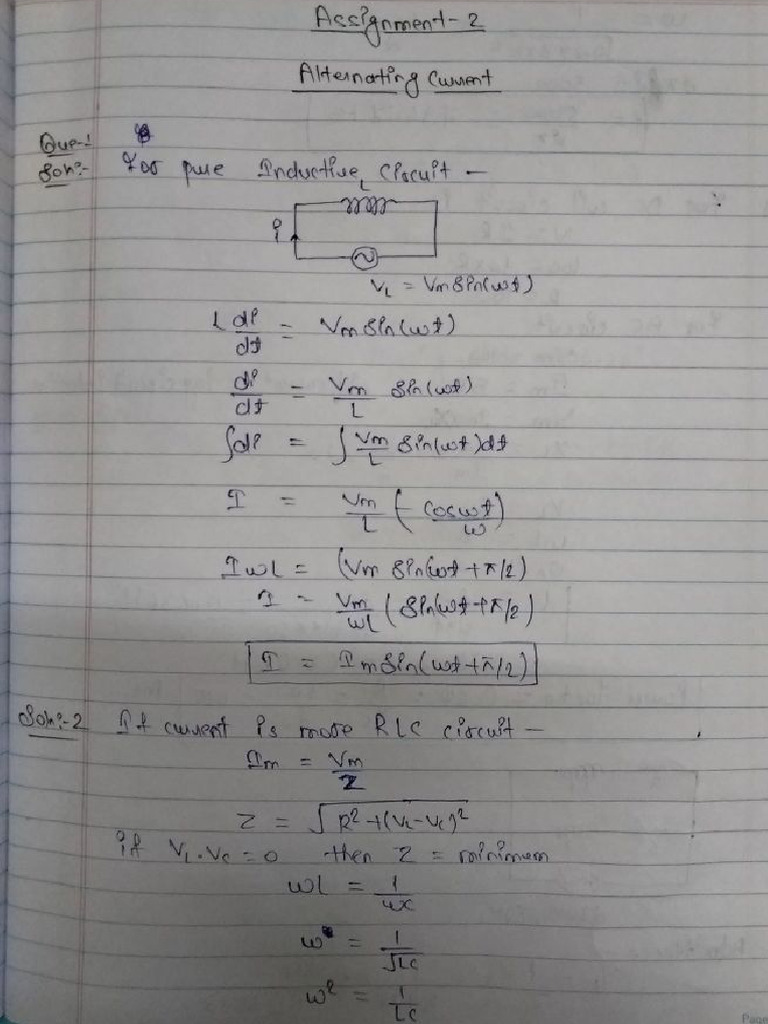 Assignment-2
Alternating Current
Que-1
Soln:- For pure Inductive Circuit –
L
i
VL = Vm sin(ωt)
L di/dt = Vm sin(ωt)
di/dt = Vm/L sin(ωt)
∫di = ∫ Vm/L sin(ωt)dt
I = Vm/L (- cosωt/ω)
IωL = (Vm sin(ωt + π/2)
I = Vm/ωL (sin(ωt + π/2)
I = Im sin(ωt + π/2)
Soln:-2 If current is more RLC circuit –
Im = Vm/Z
Z = √R² + (VL - Vc)²
if VL . Vc = 0 then Z = minimum
ωL = 1/ωc
ω = 1/√LC
ω² = 1/LC
Page